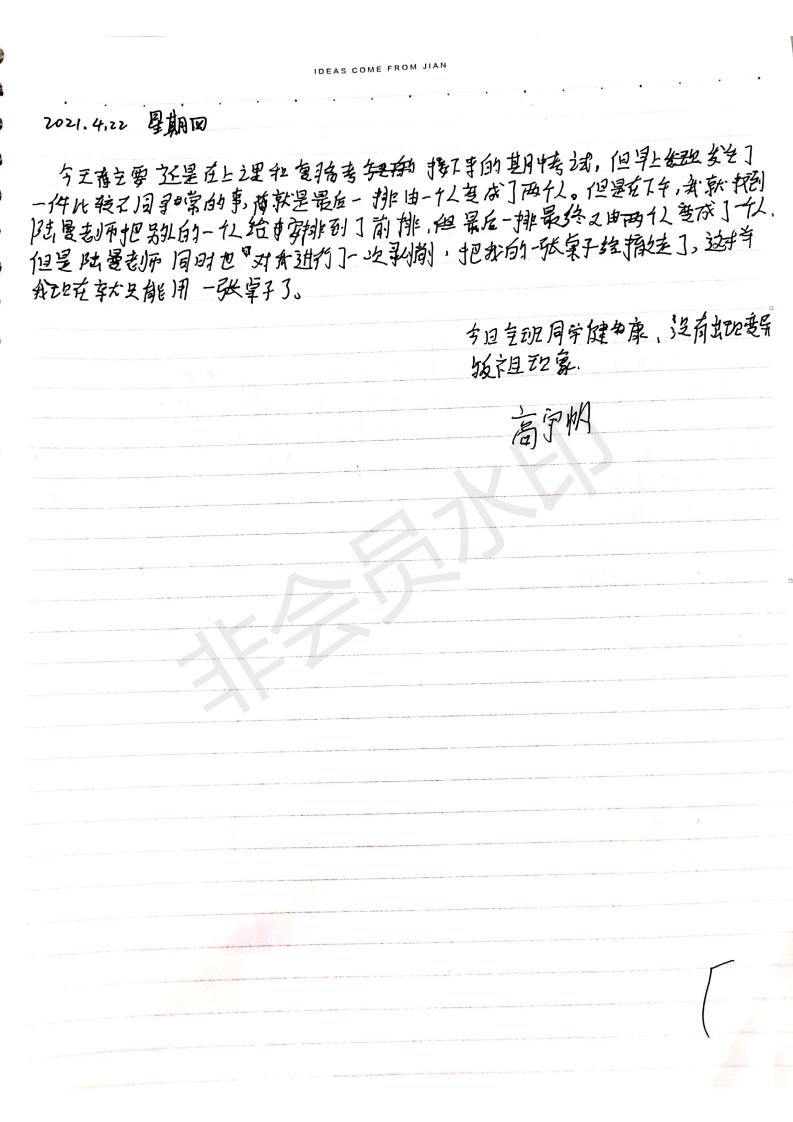 IDEAS COME FROM JIAN
2021.4.22 星期四
今天主要还是在上课和复习备考接下来的期中考试，但早上发生了
一件比较不同寻常的事，就是最后一排由一个人变成了两个人。但是在下午，我就找到
陆曼老师把别的一个人给安排到了前排，但最后一排最终又由两个人变成了一个人，
但是陆曼老师同时也对我进行了一次剥削，把我的一张桌子给撤走了，这样
我现在就只能用一张桌子了。
今日全班同学健康，没有出现变异
返祖现象.
高宇帆
非会员水印